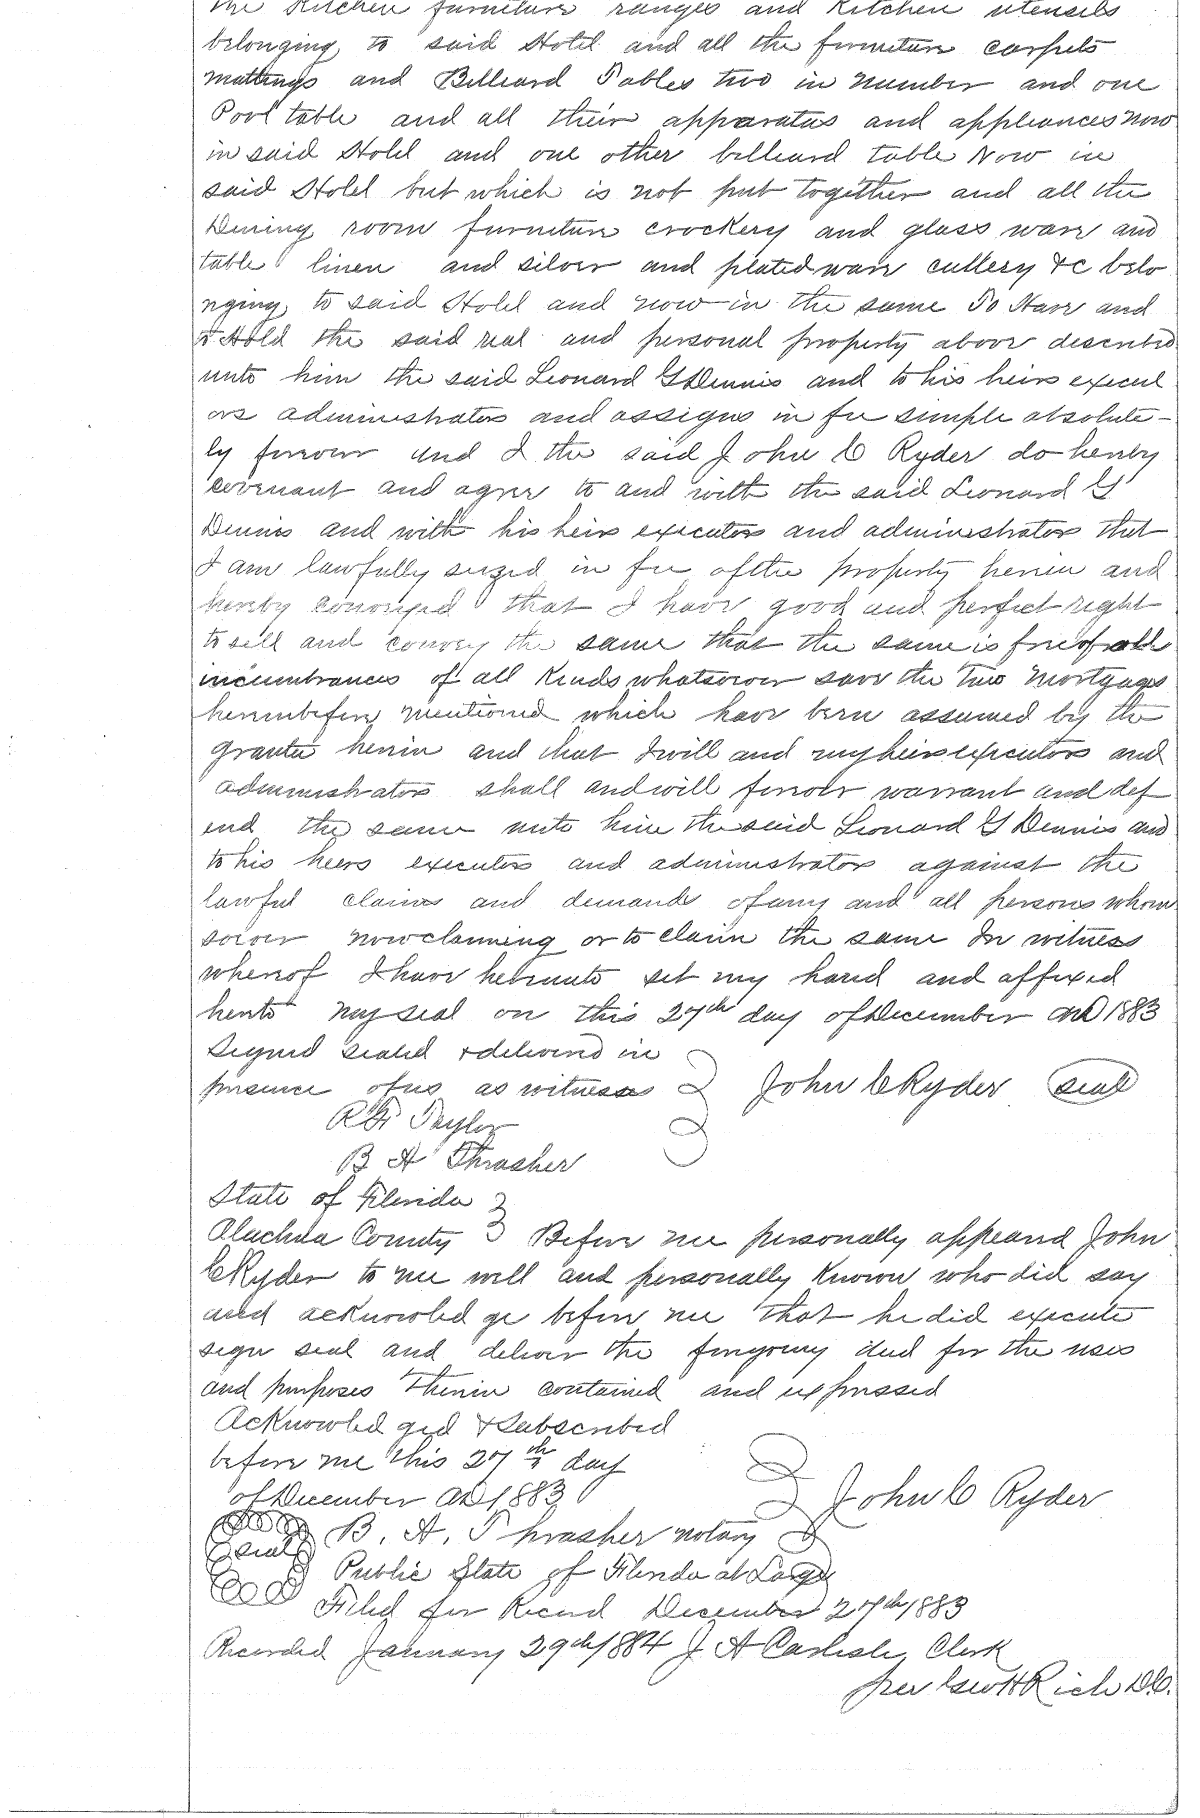 the Kitchen furniture ranges and Kitchen utensels
belonging to said Hotel and all the furniture carpets
mattings and Billiard Tables two in number and one
Pool table and all their apparatus and appliances now
in said Hotel and one other billiard table Now in
said Hotel but which is not put together and all the
Dining room furniture crockery and glass ware and
table linen and silver and plated ware cutlery &c belo
nging to said Hotel and now in the same To Have and
to Hold the said real and personal property above described
unto him the said Leonard G Dennis and to his heirs execut
ors administrators and assigns in fee simple absolute-
ly forever and I the said John C Ryder do hereby
covenant and agree to and with the said Leonard G
Dennis and with his heirs executors and administrators that
I am lawfully seized in fee of the property herein and
hereby conveyed that I have good and perfect right
to sell and convey the same that the same is free of all
incumbrances of all Kinds whatsoever save the two Mortgages
hereinbefore mentioned which have been assumed by the
grantee herein and that I will and my heirs executors and
administrators shall and will forever warrant and def
end the same unto him the said Leonard G Dennis and
to his heirs executors and administrators against the
lawful claims and demands of any and all persons whom
soever now claiming or to claim the same In witness
whereof I have hereunto set my hand and affixed
hereto my seal on this 27th day of December AD 1883
Signed sealed & delivered in
presence of us as witnesses John C Ryder seal
R F Taylor
B A Thrasher
State of Florida
Alachua County Before me personally appeared John
C Ryder to me well and personally Known who did say
and acknowledge before me that he did execute
sign seal and deliver the foregoing deed for the uses
and purposes therein contained and expressed
Acknowledged & Subscribed
before me this 27th day
of December AD 1883 John C Ryder
seal B. A. Thrasher notary
Public State of Florida at Large
Filed for Record December 27th 1883
Recorded January 29th 1884 J A Carlisle Clerk
per Geo H Rich D.C.